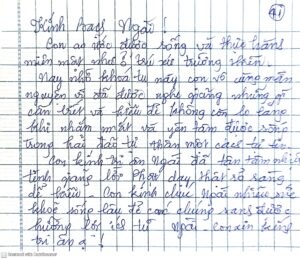 91
Kính bạch Ngài!
Con ao ước được sống và thực hành
miên mật như ở trú xứ trường thiền.
Nay nhờ khóa tu này con vô cùng mãn
nguyện vì đã được nghe giảng những gì
cần biết và hiểu để không còn lo lắng
khi nhắm mắt và yên tâm được sống
trong hải đảo tự thân một cách tự tin.
Con kính tri ân Ngài đã tận tâm
giảng lời Phật dạy thật rõ ràng
dễ hiểu. Con kính chúc Ngài nhiều sức
khỏe sống lâu để con chúng sanh được
hưởng lợi ích từ Ngài. Con xin kính
tri ân ạ!